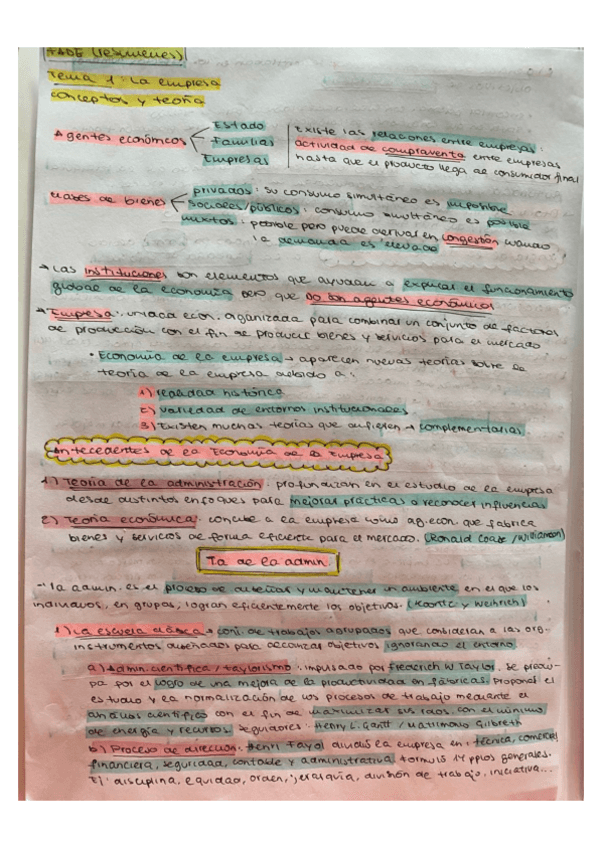 FADE (resúmenes)
Tema 1: La empresa
conceptos y teoría
Agentes económicos
Estado
Familias
Empresas
Existe las relaciones entre empresas:
actividad de compraventa entre empresas
hasta que el producto llega al consumidor final
clases de bienes
privados: su consumo simultáneo es imposible
sociales/públicos: consumo simultáneo es posible
mixtos: posible pero puede derivar en congestión cuando
la demanda es elevada
→ Las instituciones son elementos que ayudan a explicar el funcionamiento
global de la economía pero que no son agentes económicos
→ Empresa: unidad econ. organizada para combinar un conjunto de factores
de producción con el fin de producir bienes y servicios para el mercado
• Economía de la empresa → aparecen nuevas teorías sobre la
teoría de la empresa debido a:
1) realidad histórica
2) variedad de entornos institucionales
3) Existen muchas teorías que difieren → complementarias
Antecedentes de la Economía de la Empresa
1) Teoría de la administración: profundizan en el estudio de la empresa
desde distintos enfoques para mejorar prácticas o reconocer influencias
2) Teoría económica: concibe a la empresa como ag. econ. que fabrica
bienes y servicios de forma eficiente para el mercado. (Ronald Coase / Williamson)
Ta de la admin.
La admin. es el proceso de diseñar y mantener un ambiente en el que los
individuos, en grupos, logran eficientemente los objetivos. (Koontz y Weihrich)
1) La escuela clásica → conj. de trabajos agrupados que consideran a las org.
instrumentos diseñados para alcanzar objetivos ignorando el entorno
a) Admin. científica / taylorismo: impulsado por Frederich W. Taylor. Se preocu-
pa por el logro de una mejora de la productividad en fábricas. Propone el
estudio y la normalización de los procesos de trabajo mediante el
análisis científico con el fin de maximizar sus rdos. con el mínimo
de energía y recursos. Seguidores: Henry L. Gantt / Matrimonio Gilbreth
b) Proceso de dirección: Henri Fayol dividió la empresa en: técnica, comercial
financiera, seguridad, contable y administrativa. Formuló 14 ppios generales.
Ej: disciplina, equidad, orden, jerarquía, división de trabajo, iniciativa...